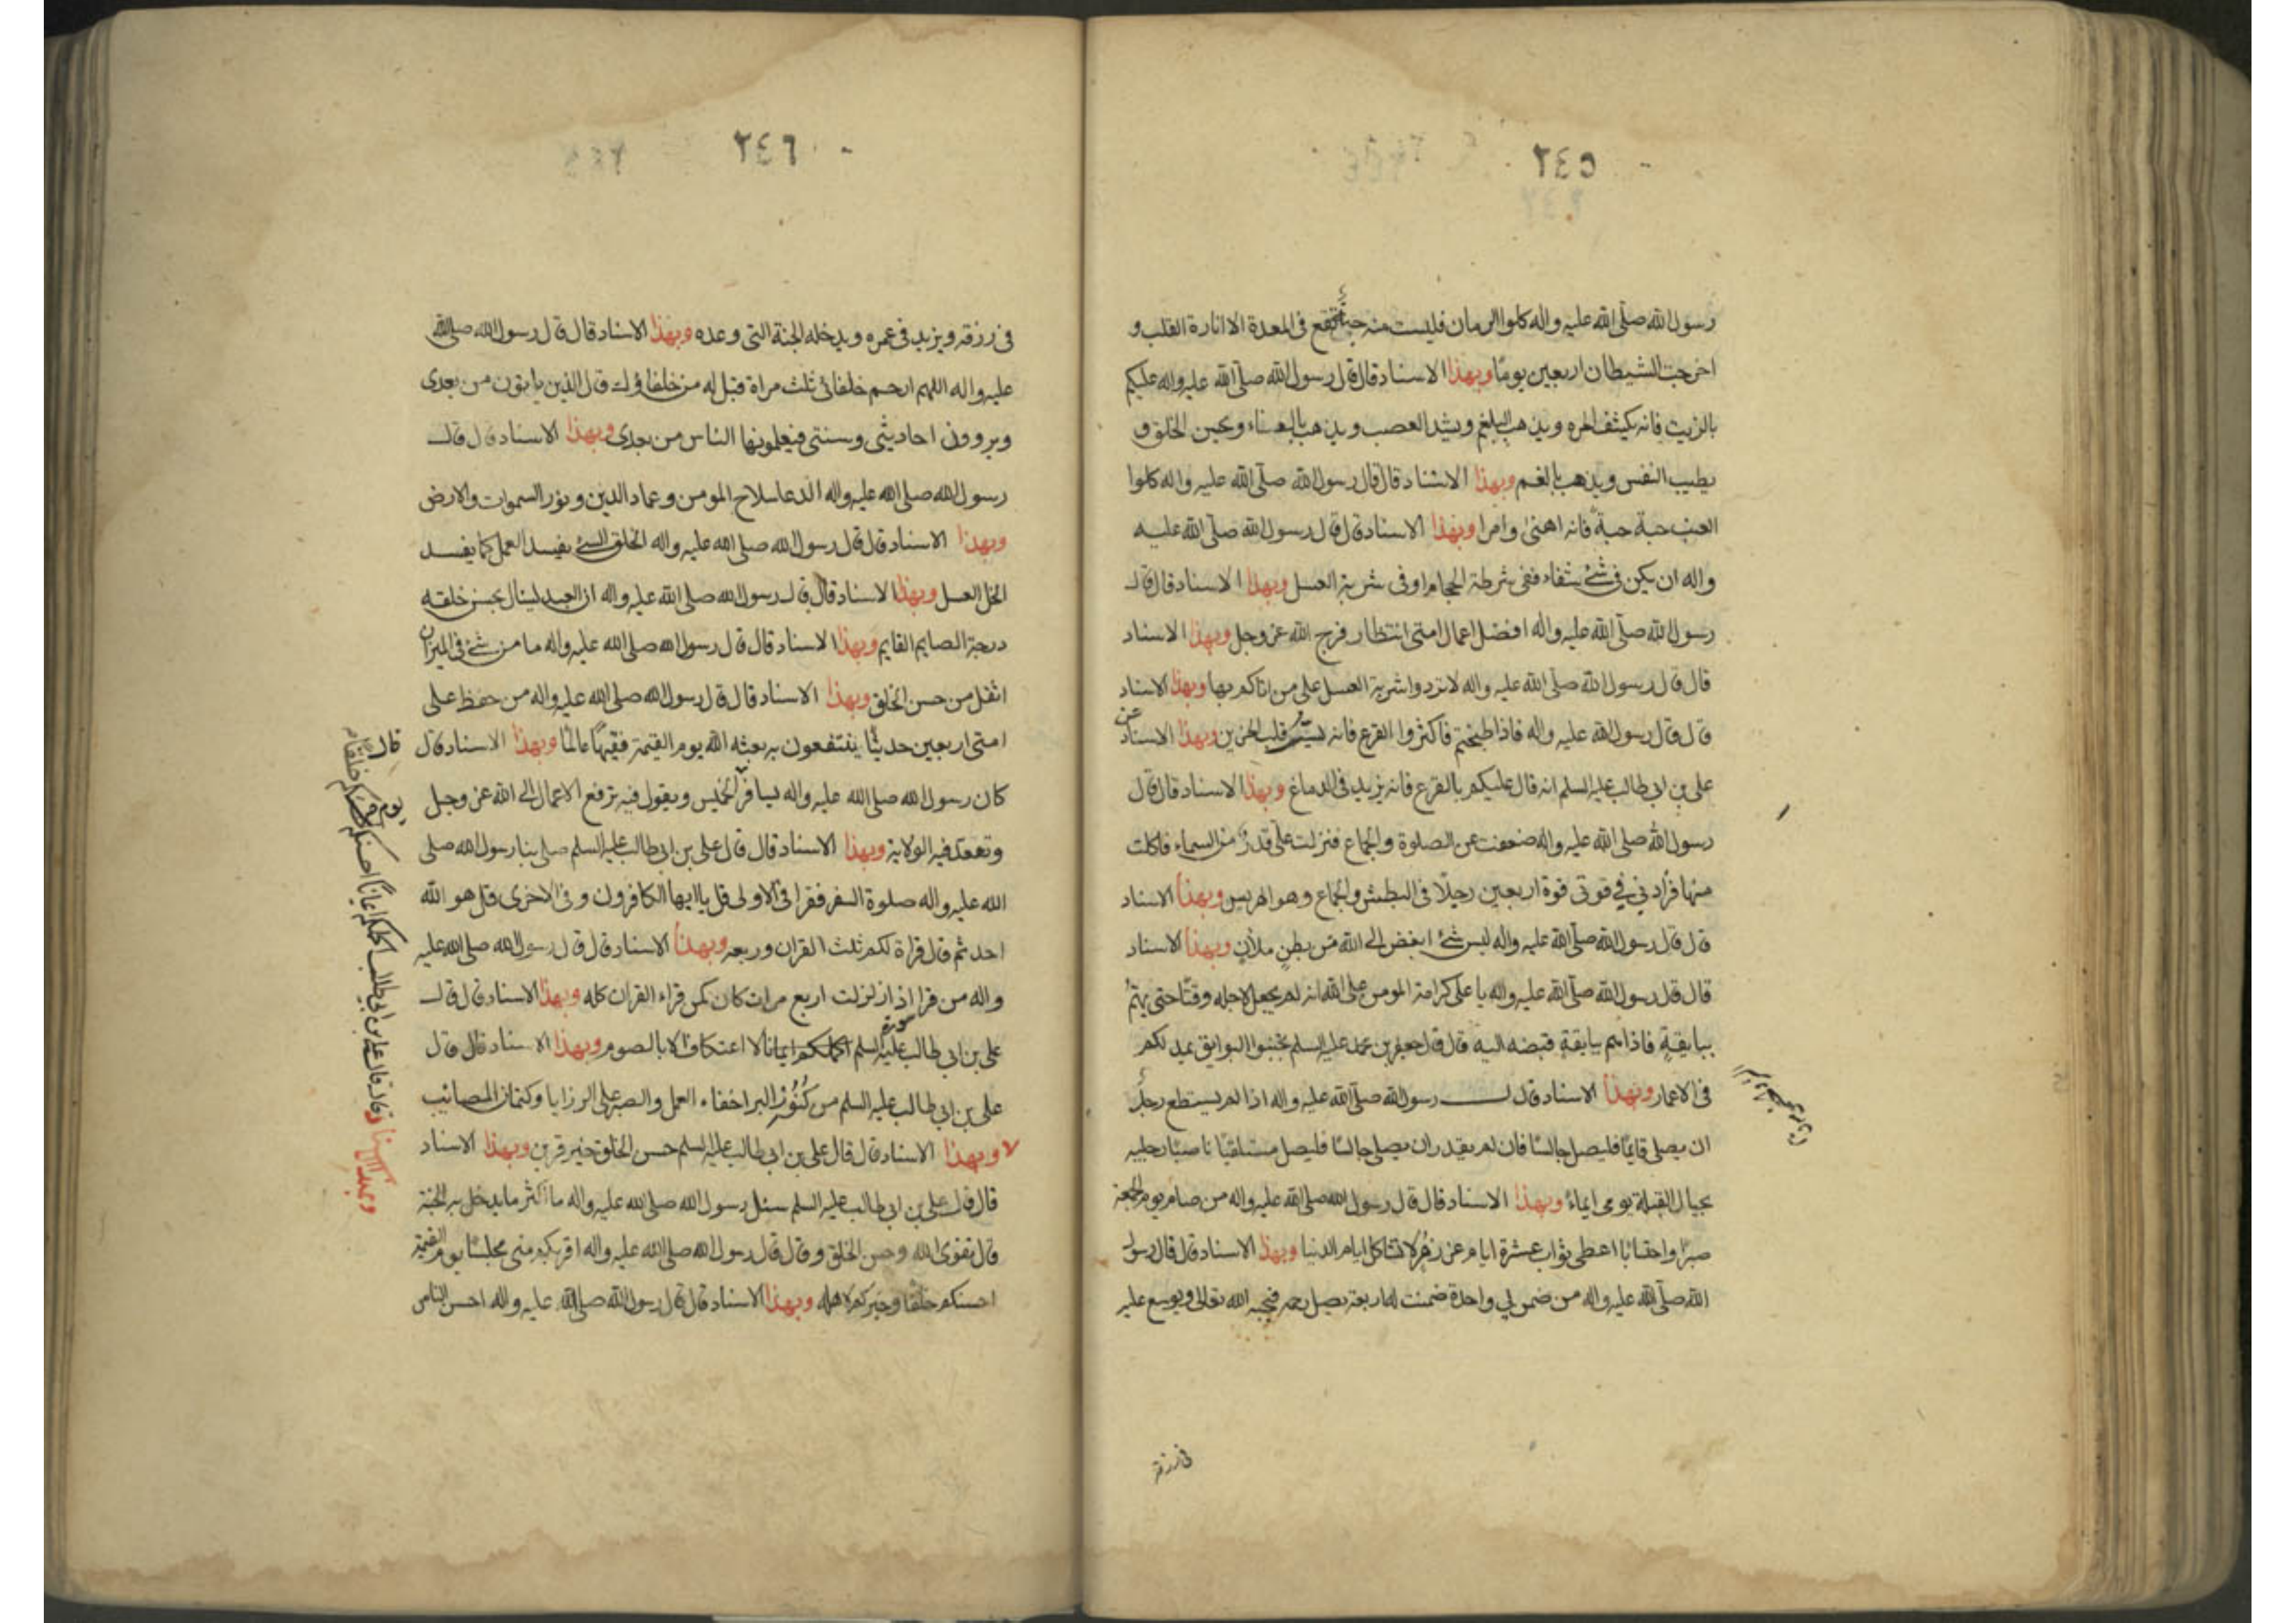 ٢٤٥
رسول الله صلى الله عليه واله كلوا الرمان فليست منه حبة تقع فى المعدة الا انارة القلب و
اخرجت الشيطان اربعين يوما وبهذا الاسناد قال قال رسول الله صلى الله عليه واله عليكم
بالزيت فانه يكشف المره ويذهب البلغم ويشد العصب ويذهب بالعناء ويحسن الخلق و
يطيب النفس ويذهب بالغم وبهذا الاسناد قال قال رسول الله صلى الله عليه واله كلوا
العنب حبة حبة فانه اهنئ وامرا وبهذا الاسناد قال قال رسول الله صلى الله عليه
واله ان يكن فى شئ شفاء ففى شرطة الحجام او فى شربة العسل وبهذا الاسناد قال قال
رسول الله صلى الله عليه واله افضل اعمال امتى انتظار فرج الله عز وجل وبهذا الاسناد
قال قال رسول الله صلى الله عليه واله لا تردوا شربة العسل على من اتاكم بها وبهذا الاسناد
قال قال رسول الله عليه واله فاذا طبختم فاكثروا القرع فانه يسر قلب الحزين وبهذا الاسناد عن
على بن ابى طالب عليه السلم انه قال عليكم بالقرع فانه يزيد فى الدماغ وبهذا الاسناد قال قال
رسول الله صلى الله عليه واله ضعفت عن الصلوة والجماع فنزلت على قدر من السماء فاكلت
منها فزادني في قوتى قوة اربعين رجلا فى البطش والجماع وهو الهريس وبهذا الاسناد
قال قال رسول الله صلى الله عليه واله ليس شئ ابغض الى الله من بطن ملان وبهذا الاسناد
قال قال رسول الله صلى الله عليه واله يا على كرامة المومن على الله انه لم يجعل لاجله وقتا حتى يهتم
ببايقة فاذا هم ببايقة قبضه اليه قال قال جعفر بن محمد عليه السلم تجنبوا البوايق يمد لكم
فى الاعمار وبهذا الاسناد قال قال رسول الله صلى الله عليه واله اذا لم يستطع رجل
ان يصلى قايما فليصل جالسا فان لم يقدر ان يصلى جالسا فليصل مستلقيا ناصبا رجليه
بحيال القبلة يومى ايماء وبهذا الاسناد قال قال رسول الله صلى الله عليه واله من صام يوم الجمعة
صبرا واحتسابا اعطى ثواب عشرة ايام غر زهر لا تشاكل ايام الدنيا وبهذا الاسناد قال قال رسول
الله صلى الله عليه واله من ضمن لي واحدة ضمنت له اربعة يصل رحمه فيحبه الله تعالى ويوسع عليه
فى رزقه
٢٤٦
فى رزقه ويزيد فى عمره ويدخله الجنة التى وعده وبهذا الاسناد قال قال رسول الله صلى الله
عليه واله اللهم ارحم خلفائى ثلث مراة فقيل له من خلفاؤك قال الذين ياتون من بعدى
ويروون احاديثى وسنتى فيعلمونها الناس من بعدى وبهذا الاسناد قال قال
رسول الله صلى الله عليه واله الدعا سلاح المومن وعماد الدين ونور السموات والارض
وبهذا الاسناد قال قال رسول الله صلى الله عليه واله الخلق السئ يفسد العمل كما يفسد
الخل العسل وبهذا الاسناد قال قال رسول الله صلى الله عليه واله ان العبد لينال بحسن خلقه
درجة الصايم القايم وبهذا الاسناد قال قال رسول الله صلى الله عليه واله ما من شئ فى الميزان
اثقل من حسن الخلق وبهذا الاسناد قال قال رسول الله صلى الله عليه واله من حفظ على
امتى اربعين حديثا ينتفعون به بعثه الله يوم القيمة فقيها عالما وبهذا الاسناد قال قال
كان رسول الله صلى الله عليه واله يسافر الخميس ويقول فيه ترفع الاعمال الى الله عز وجل
يوم
وتعقد فيه الولاية وبهذا الاسناد قال قال على بن ابى طالب عليه السلم صلى بنا رسول الله صلى
الله عليه واله صلوة السفر فقرا فى الاولى قل يا ايها الكافرون وفى الاخرى قل هو الله
احد ثم قال قراة لكم ثلث القران وربعه وبهذا الاسناد قال قال رسول الله صلى الله عليه
واله من قرا اذا زلزلت اربع مرات كان كمن قراء القران كله وبهذا الاسناد قال قال
سورة
على بن ابى طالب عليه السلم اكملكم ايمانا لا اعتكاف الا بالصوم وبهذا الاسناد قال قال
على بن ابى طالب عليه السلم من كنوز البر اخفاء العمل والصبر على الرزايا وكتمان المصائب
وبهذا الاسناد قال قال على بن ابى طالب عليه السلم حسن الخلق خير قرين وبهذا الاسناد
قال قال على بن ابى طالب عليه السلم سئل رسول الله صلى الله عليه واله ما اكثر ما يدخل به الجنة
قال تقوى الله وحسن الخلق وقال قال رسول الله صلى الله عليه واله اقربكم منى مجلسا يوم القيمة
احسنكم خلقا وخيركم لاهله وبهذا الاسناد قال قال رسول الله صلى الله عليه واله احسن الناس
وبهذا الاسناد قال قال على بن ابى طالب اكملكم ايمانا احسنكم خلقا